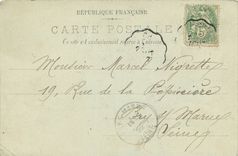 RÉPUBLIQUE FRANÇAISE
CARTE POSTALE
Ce côté est exclusivement réservé à l'adresse
Monsieur Marcel Negrette
19, Rue de la
Bry s/ Marne
(Seine)